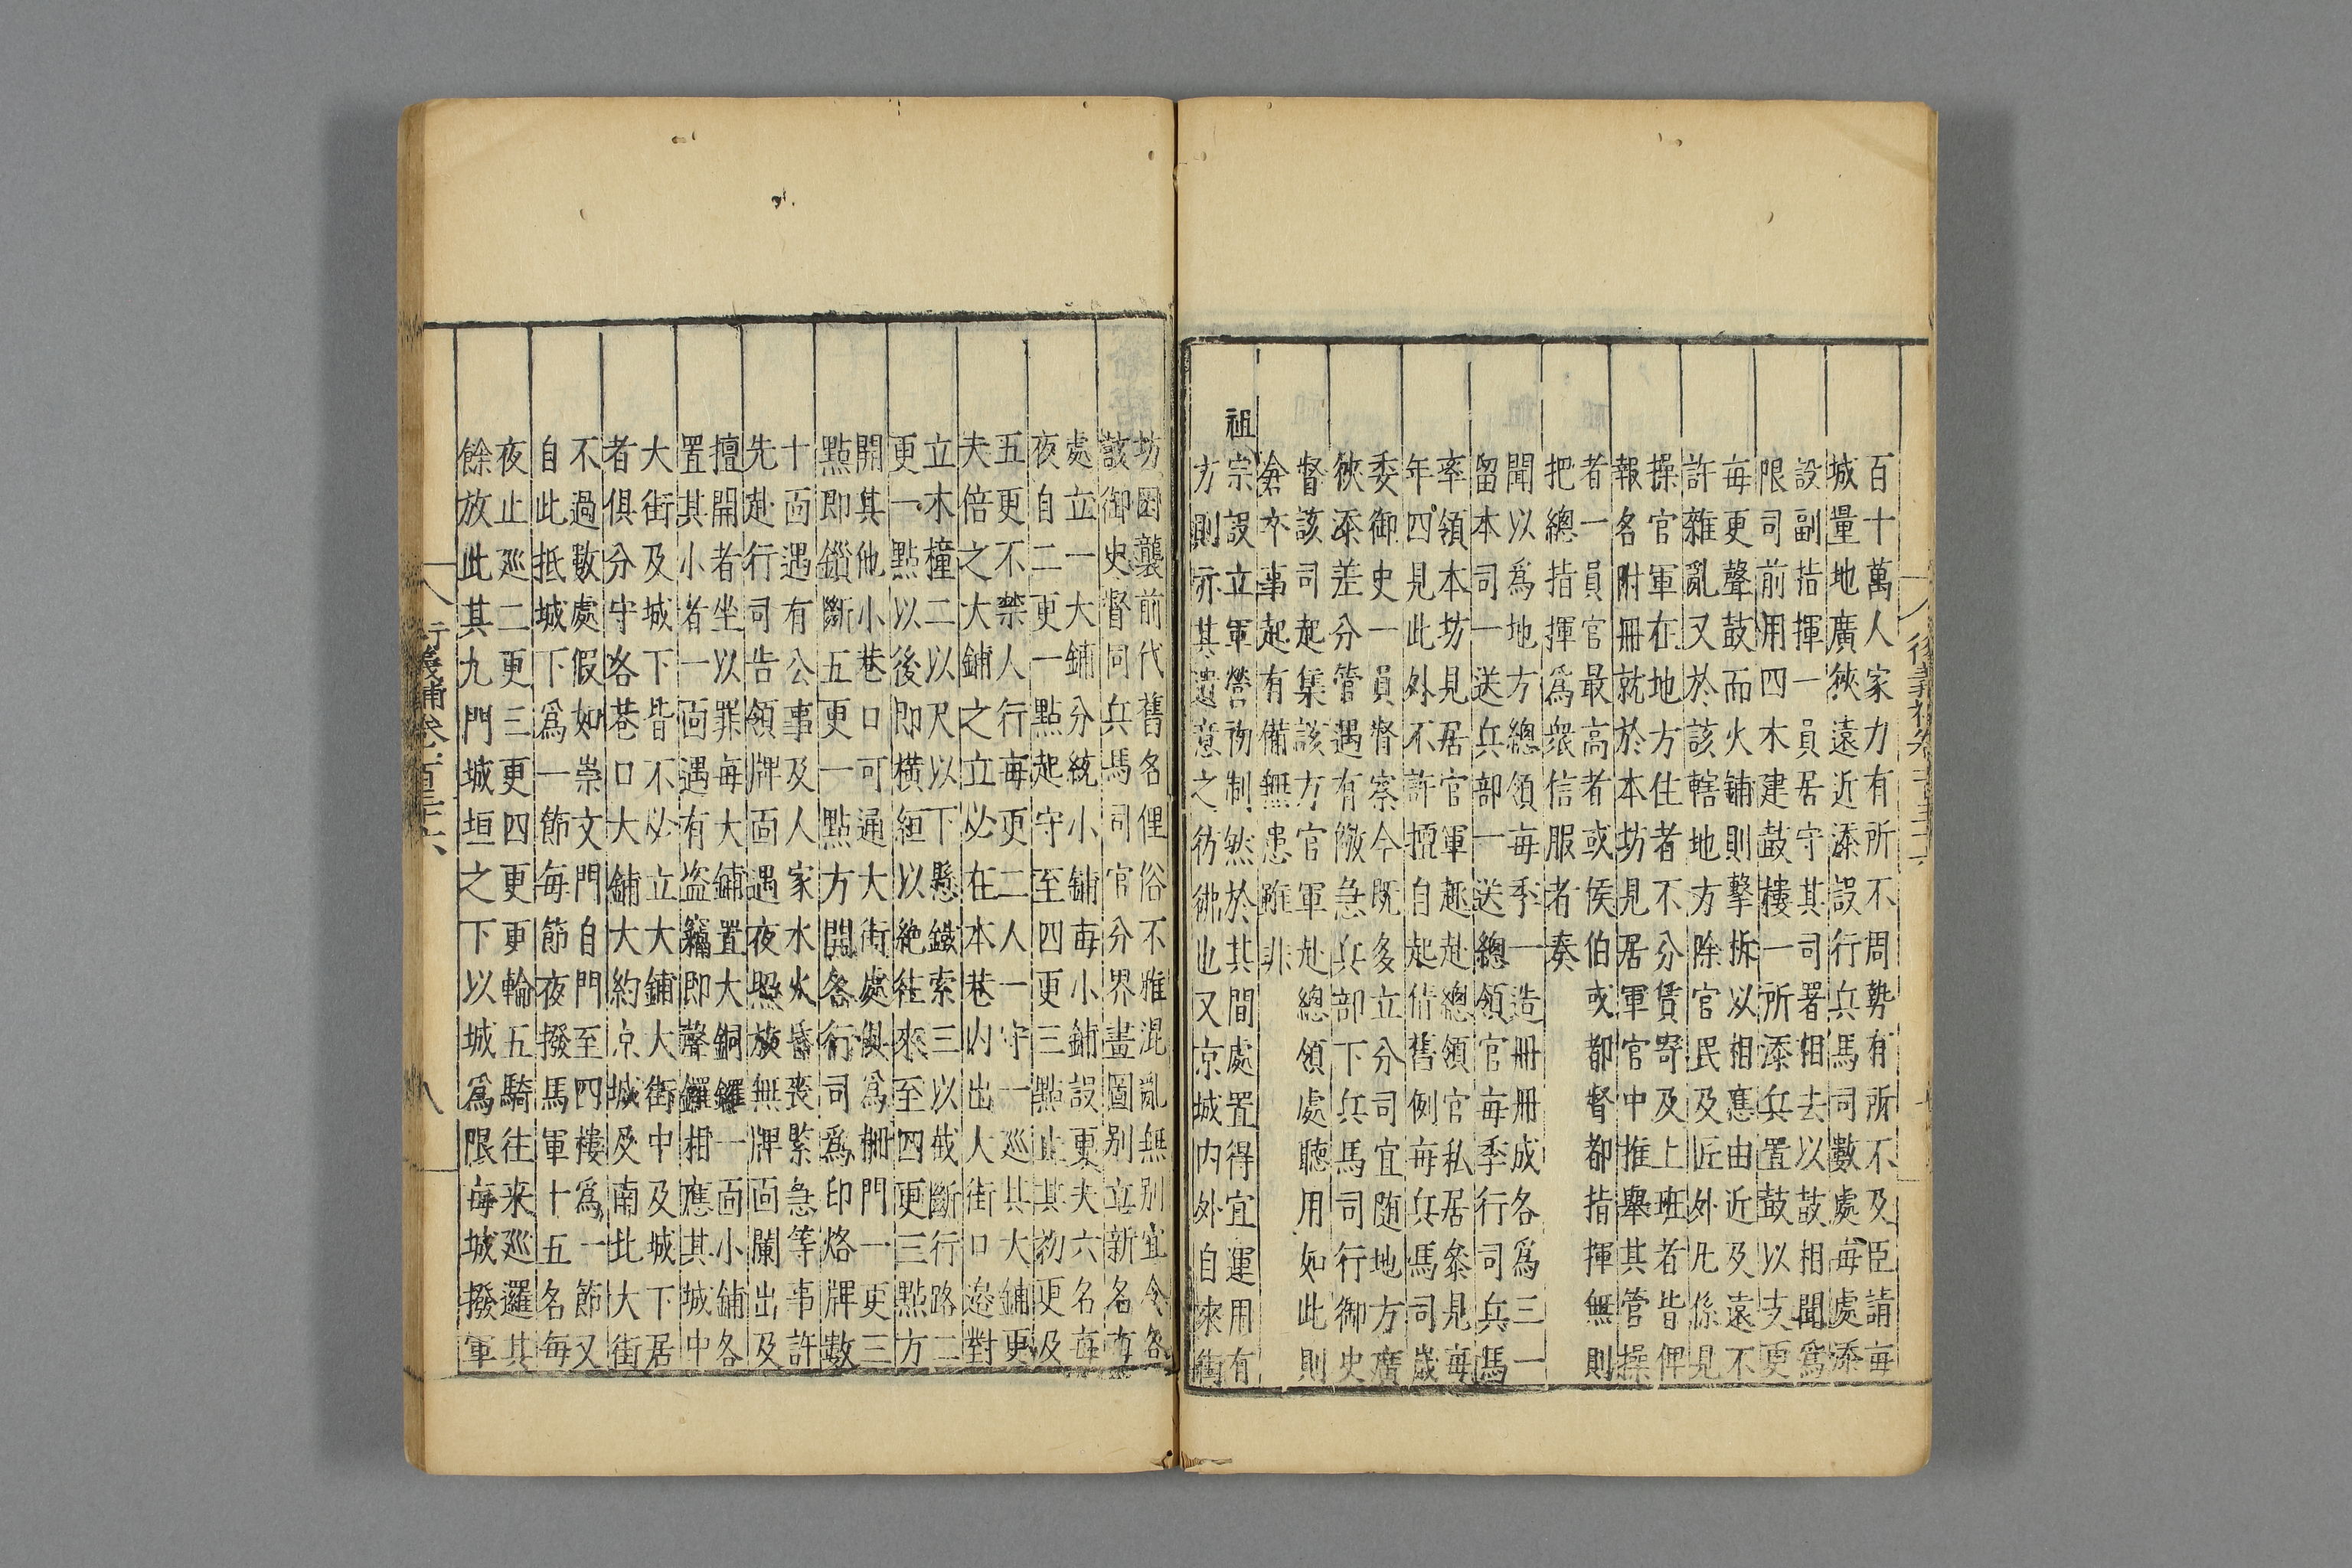 百十萬人家力有所不周勢有所不及臣請每
城量地廣狹遠近添設行兵馬司數處每處添
設副指揮一員居守其司署相去以鼓相聞爲
限司前用四木建鼓樓一所添兵置鼓以支更
每更聲鼓而火鋪則擊柝以相應由近及遠不
許雜亂又於該轄地方除官民及匠外凡係見
操官軍在地方住者不分賃寄及上班者皆俾
報名附冊就於本坊見居軍官中推舉其管操
者一員官最高者或侯伯或都督都指揮無則
把總指揮爲衆信服者奏
聞以爲地方總領每季一造冊冊成各爲三一
留本司一送兵部一送總領官每季行司兵馬
率領本坊見居官軍趣赴總領官私居叅見每
年四見此外不許擅自起倩舊例每兵馬司歲
委御史一員督察今既多立分司宜随地方廣
狹添差分管遇有儆急兵部下兵馬司行御史
督該司起集該方官軍赴總領處聽用如此則
倉卒事起有備無患雖非
祖宗設立軍營初制然於其間處置得宜運用有
方則亦其遺意之彷彿也又京城内外自來街
坊圈襲前代舊名俚俗不雅混亂無別宜令各
該御史督同兵馬司官分界畫圖別立新名每
處立一大鋪分統小鋪每小鋪設更夫六名每
夜自二更一點起守至四更三點止其初更及
五更不禁人行每更二人一守一巡其大鋪更
夫倍之大鋪之立必在本巷内出人街口邊對
立木橦二以尺以下懸鐵索三以截斷行路二
更一點以後即橫絙以絶徃來至四更三點方
開其他小巷口可通大街處俱爲柵門一更三
點即鎖斷五更一點方開各行司爲印烙牌數
十面遇有公事及人家水火昏喪緊急等事許
先赴行司告領牌面遇夜照放無牌面闌出及
擅開者坐以罪每大鋪置大銅鑼一面小鋪各
置其小者一面遇有盗竊即聲鑼相應其城中
大街及城下皆不必立大鋪大街中及城下居
者俱分守各巷口大鋪大約京城及南北大街
不過數處假如崇文門自門至四樓爲一節又
自此抵城下爲一節每節夜撥馬軍十五名每
夜止廵二更三更四更更輪五騎往来廵邏其
餘放此其九門城垣之下以城爲限每城撥軍